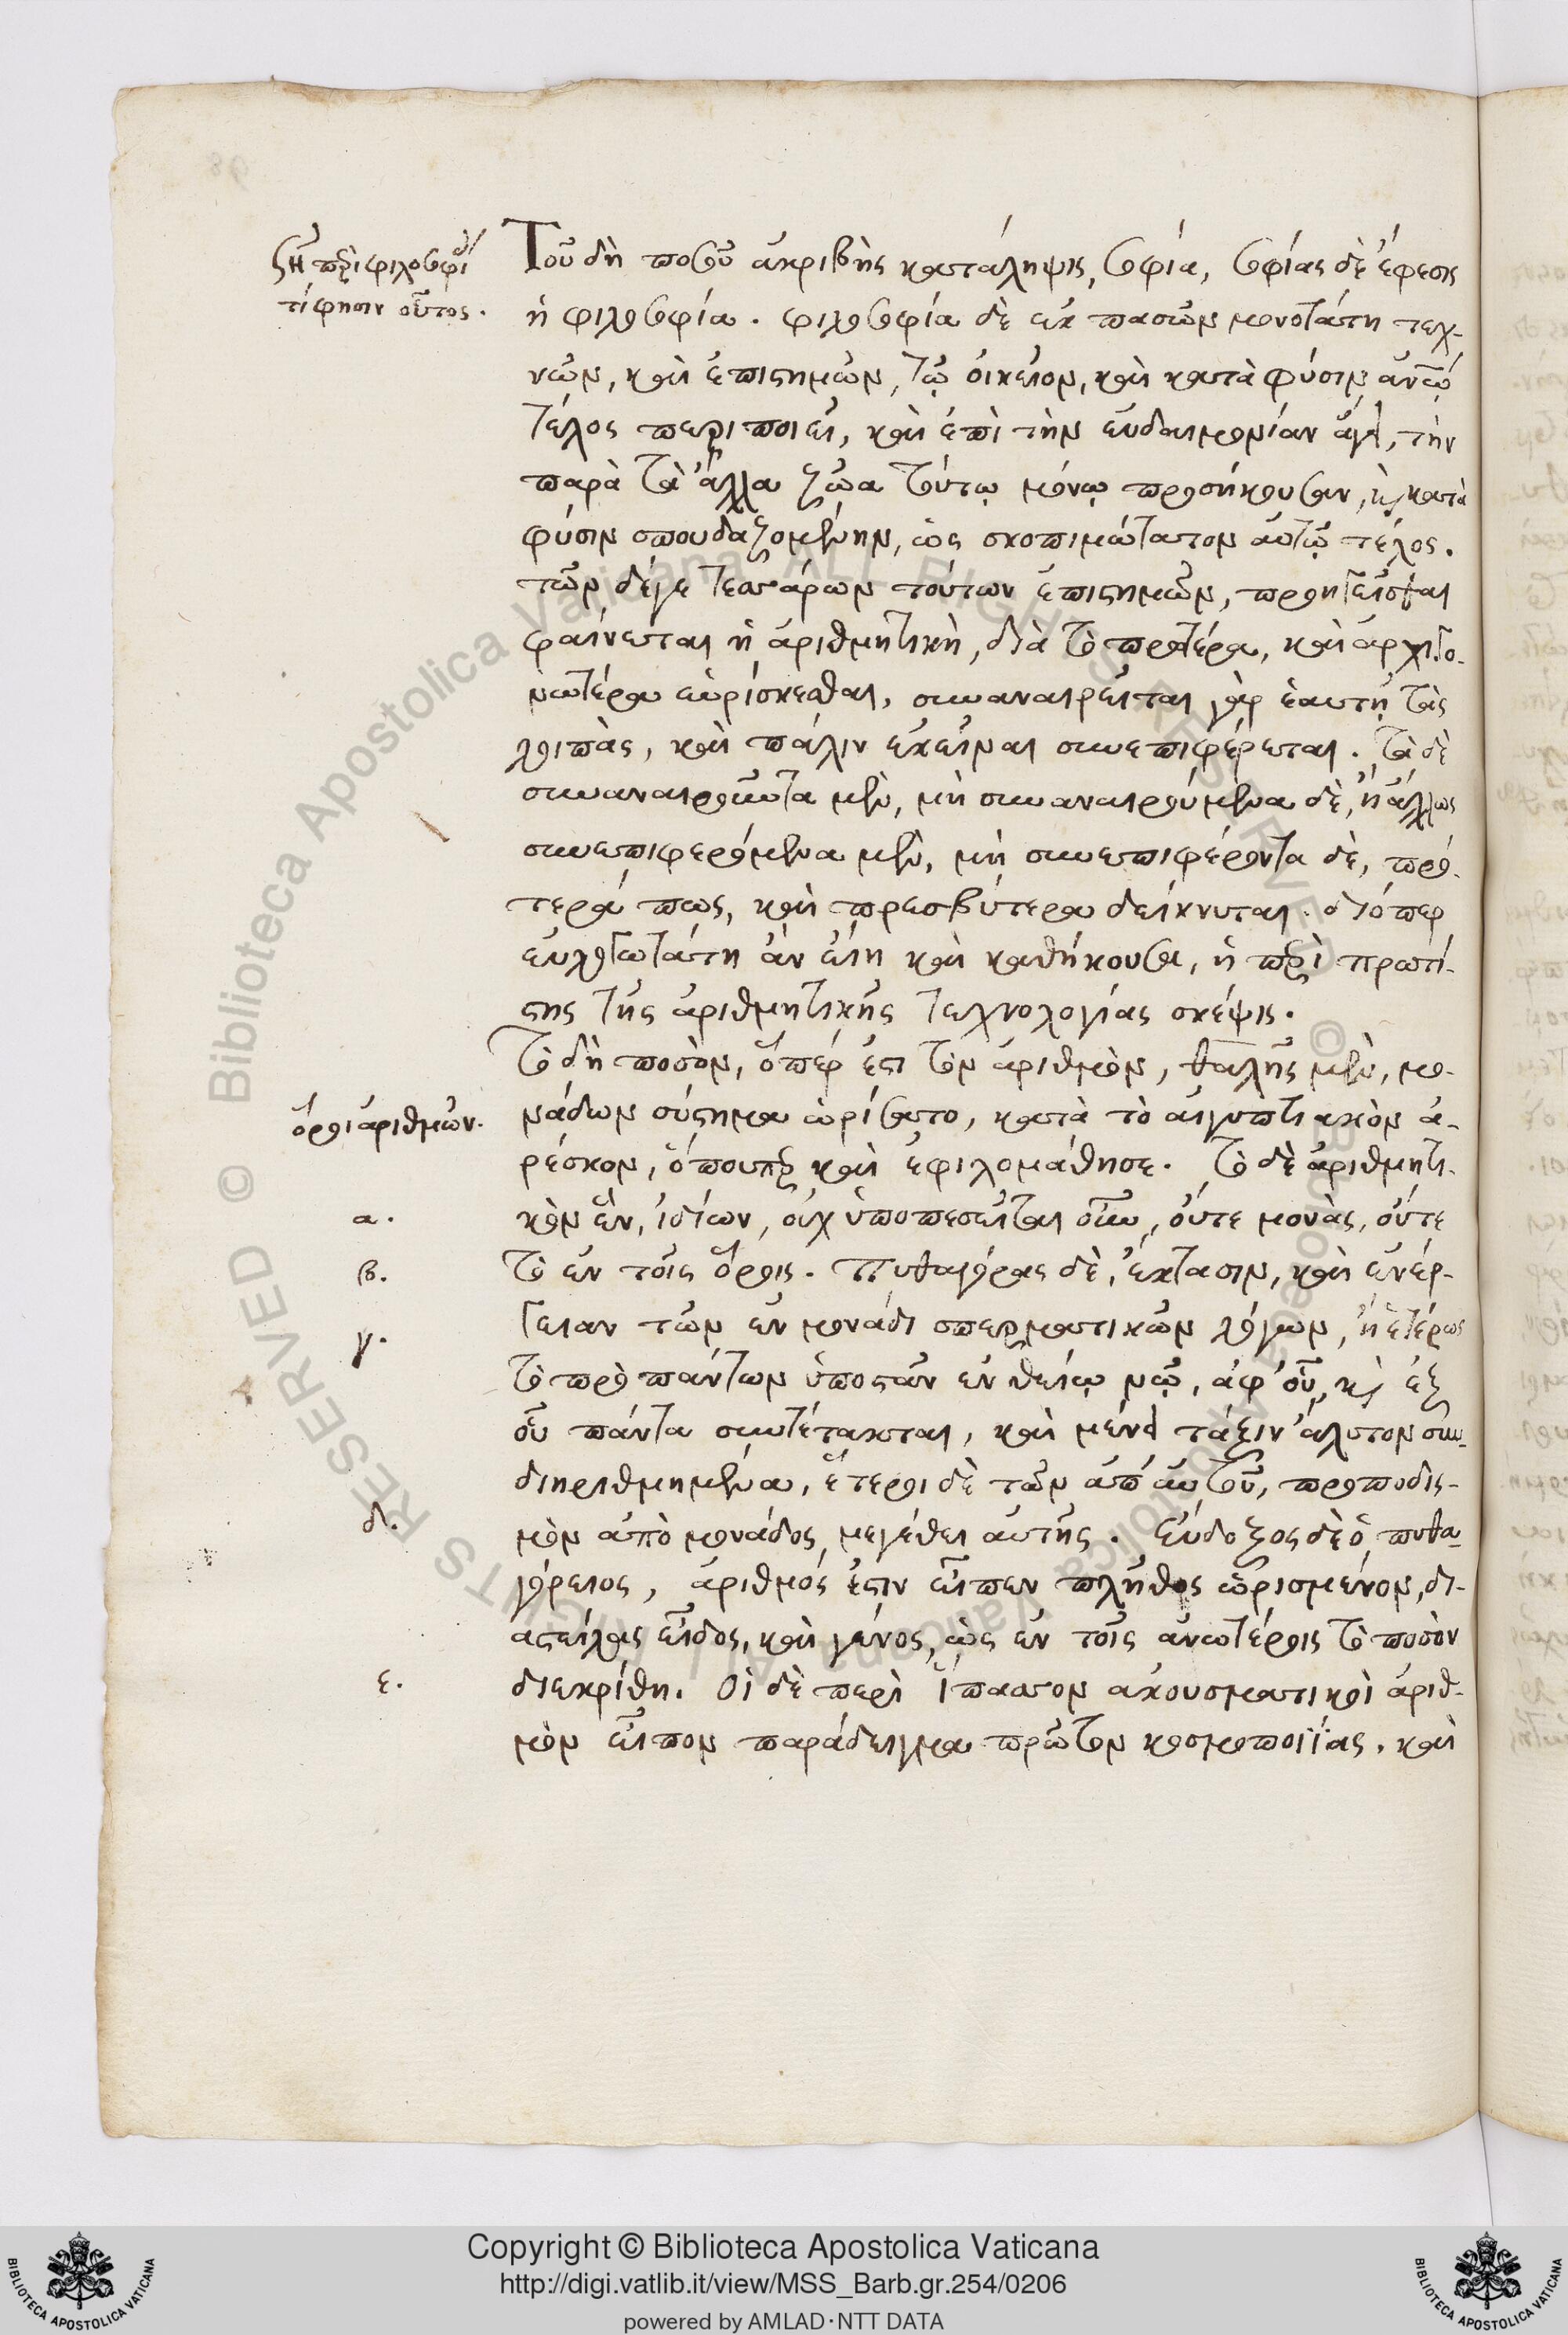 ζη περὶ φιλοσοφί
τί φησιν οὗτος.
Τοῦ δὴ ποσοῦ ἀκριβὴς κατάληψις, σοφία, σοφίας δὲ ἔφεσις
ἡ φιλοσοφία. φιλοσοφία δὲ ἐκ πασῶν μονοτάτη τεχ-
νῶν, καὶ ἐπιστημῶν, τῷ οἰκεῖον, καὶ κατὰ φύσιν ἀνῷ
τέλος περιποιεῖ, καὶ ἐπὶ τὴν εὐδαιμονίαν ἄγει, τὴν
παρὰ τὰ ἄλλα ζῶα τούτῳ μόνῳ προσήκουσαν, κ κατὰ
φύσιν σπουδαζομένην, ὡς σκοπιμώτατον αὐτῷ τέλος.
τῶν δέ γε τεσσάρων τούτων ἐπιστημῶν, προηγεῖσθαι
φαίνεται ἡ ἀριθμητικὴ, διὰ τὸ προτέρα, καὶ ἀρχιγο-
νωτέρα εὑρίσκεσθαι, συναναιρεῖται γὰρ ἑαυτῇ τὰς
λοιπὰς, καὶ πάλιν ἐκείναι συνεπιφέρεται. τὰ δὲ
συναναιροῦντα μὲν, μὴ συναναιρούμενα δὲ, ἢ ἄλλως
συνεπιφερόμενα μὲν, μὴ συνεπιφέροντα δὲ, πρό-
τερά πως, καὶ πρεσβύτερα δείκνυται. διόπερ
εὐλογωτάτη ἂν εἴη καὶ καθήκουσα, ἡ περὶ πρωτί-
στης τῆς ἀριθμητικῆς τεχνολογίας σκέψις.
Τὸ δὴ ποσὸν, ὅπερ ἐστ τὸν ἀριθμὸν, θαλῆς μὲν, μο-
ὅροι ἀριθμῶν.
νάδων σύστημα ὡρίσατο, κατὰ τὸ αἰγυπτιακὸν ἀ-
ρέσκον, ὅπουπερ καὶ ἐφιλομάθησε. Τὸ δὲ ἀριθμητι-
α.
κὸν ἓν, ἰδίων, οὐχ ὑποπεσεῖται οὖν, οὔτε μονὰς, οὔτε
β.
τὸ ἓν τοῖς ὅροις. Πυθαγόρας δὲ, ἔκτασιν, καὶ ἐνέρ-
γ.
γειαν τῶν ἐν μονάδι σπερματικῶν λόγων, ἢ ἑτέρως
τὸ πρὸ πάντων ὑποστὰν ἐν θείῳ νῷ, ἀφ' οὗ, κ ἐξ
οὗ πάντα συντέτακται, καὶ μένει τάξιν ἄλυτον συν-
διηριθμημένα, ἕτεροι δὲ τῶν ἀπ' αὐτοῦ, προποδισ-
δ.
μὸν ἀπὸ μονάδος μεγέθει αὐτῆς. Εὔδοξος δὲ ὁ πυθα-
γόρειος, ἀριθμός ἐστιν εἶπεν πλῆθος ὡρισμένον, δι-
αστείλας εἶδος, καὶ γένος, ὡς ἐν τοῖς ἀνωτέροις τὸ ποσὸν
ε.
διεκρίθη. Οἱ δὲ περὶ ἵππασον ἀκουσματικοὶ ἀριθ-
μὸν εἶπον παράδειγμα πρῶτον κοσμοποιΐας. καὶ
Copyright © Biblioteca Apostolica Vaticana
http://digi.vatlib.it/view/MSS_Barb.gr.254/0206
powered by AMLAD·NTT DATA